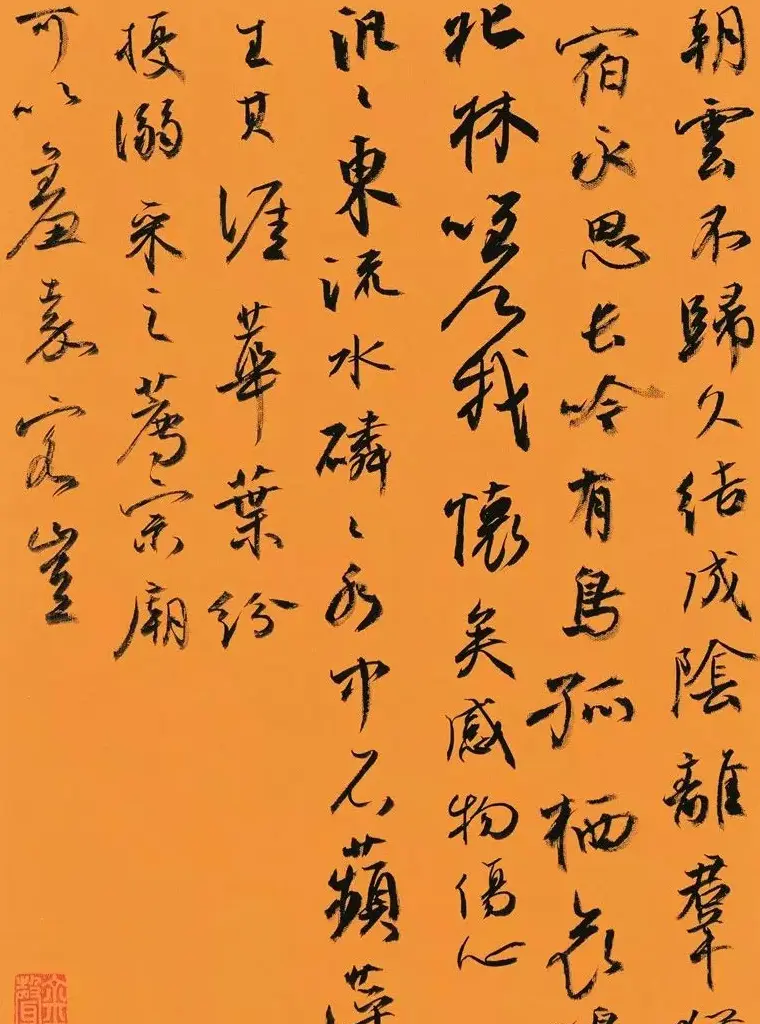 朝雲不歸久結成陰離羣
宿永思長吟有鳥孤栖哀
北林嗟我懷矣感物傷心
汎々東流水磷々水中石蘋藻
生其涯華葉紛
擾溺采之薦宗廟
可以羞嘉客豈